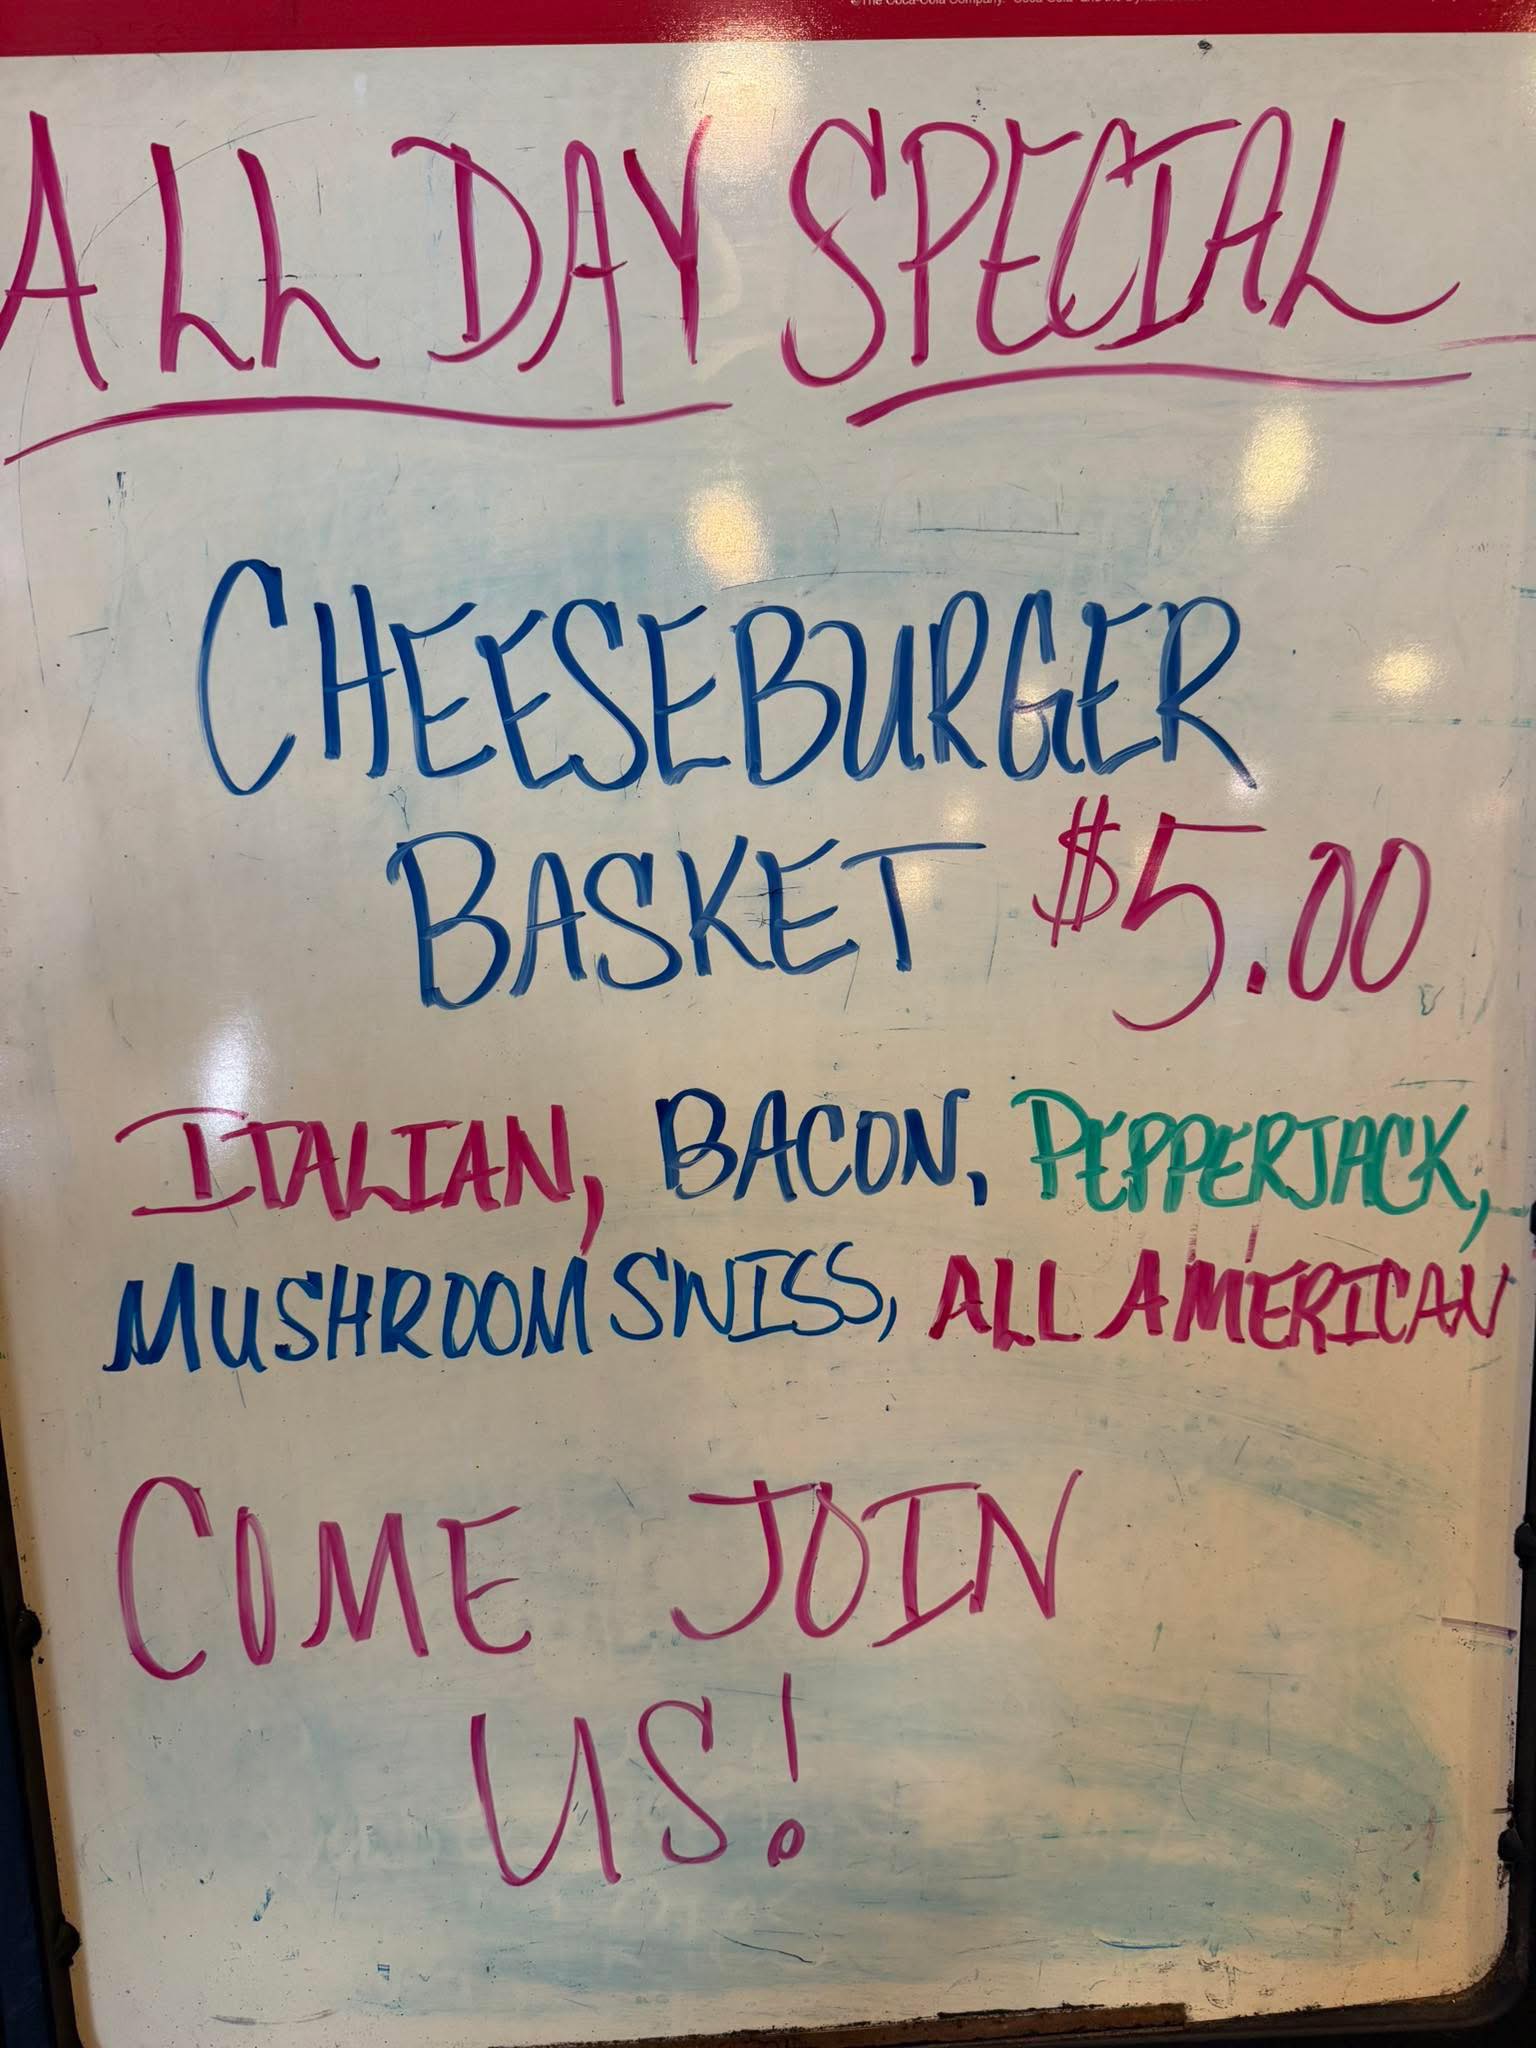 ©The Coca-Cola Company. "Coca-Cola" and the Dynamic
ALL DAY SPECIAL
CHEESEBURGER
BASKET $5.00
ITALIAN, BACON, PEPPERJACK,
MUSHROOM SWISS, ALL AMERICAN
COME JOIN
US!